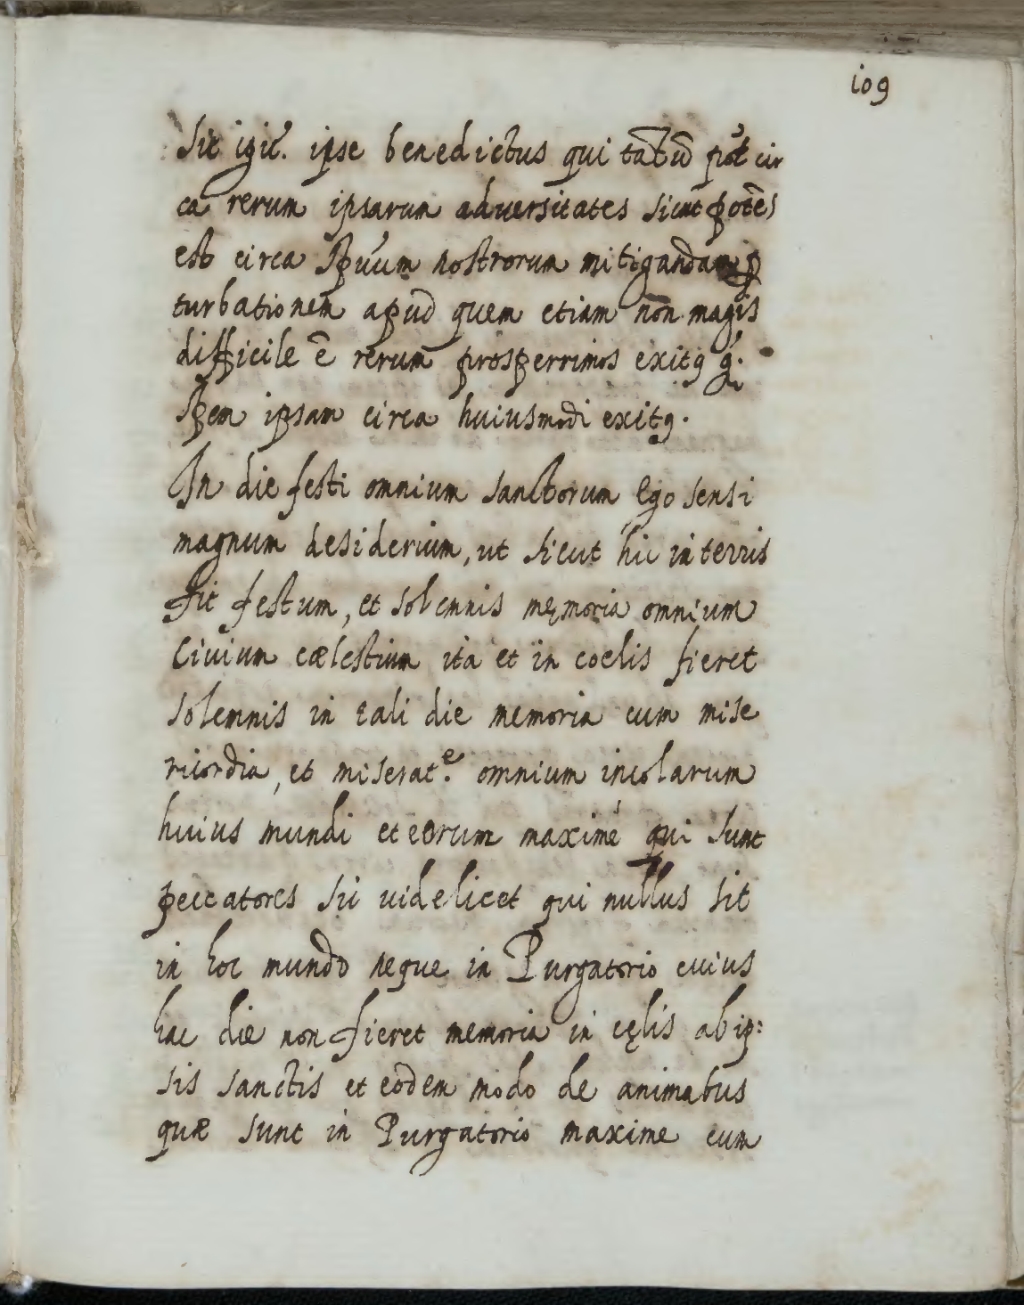 109
Sit igit̃. ipse benedictus qui tãtũ põt cir
ca rerum ipsarum adversitates sicut potẽs
est circa spũum nostrorum mitigandam p̱
turbationem apud quem etiam nõn magis
difficile ẽ rerum prosperrimos exitꝯ
spem ipsam circa huiusmodi exitꝯ.
In die festi omnium sanctorum Ego sensi
magnum desiderium, ut sicut hic in terris
fit festum, et solennis męmoria omnium
Civium cælestium ita et in coelis fieret
solemnis in tali die memoria cum mise
ricordia, et miserat.e omnium incolarum
huius mundi et eorum maximé qui sunt
peccatores sic videlicet qui nullus sit
in hoc mundo neque in Purgatorio cuius
hac die non fieret memoria in cęlis ab ip:
sis sanctis et eodem modo de animabus
quæ sunt in Purgatorio maxime cum